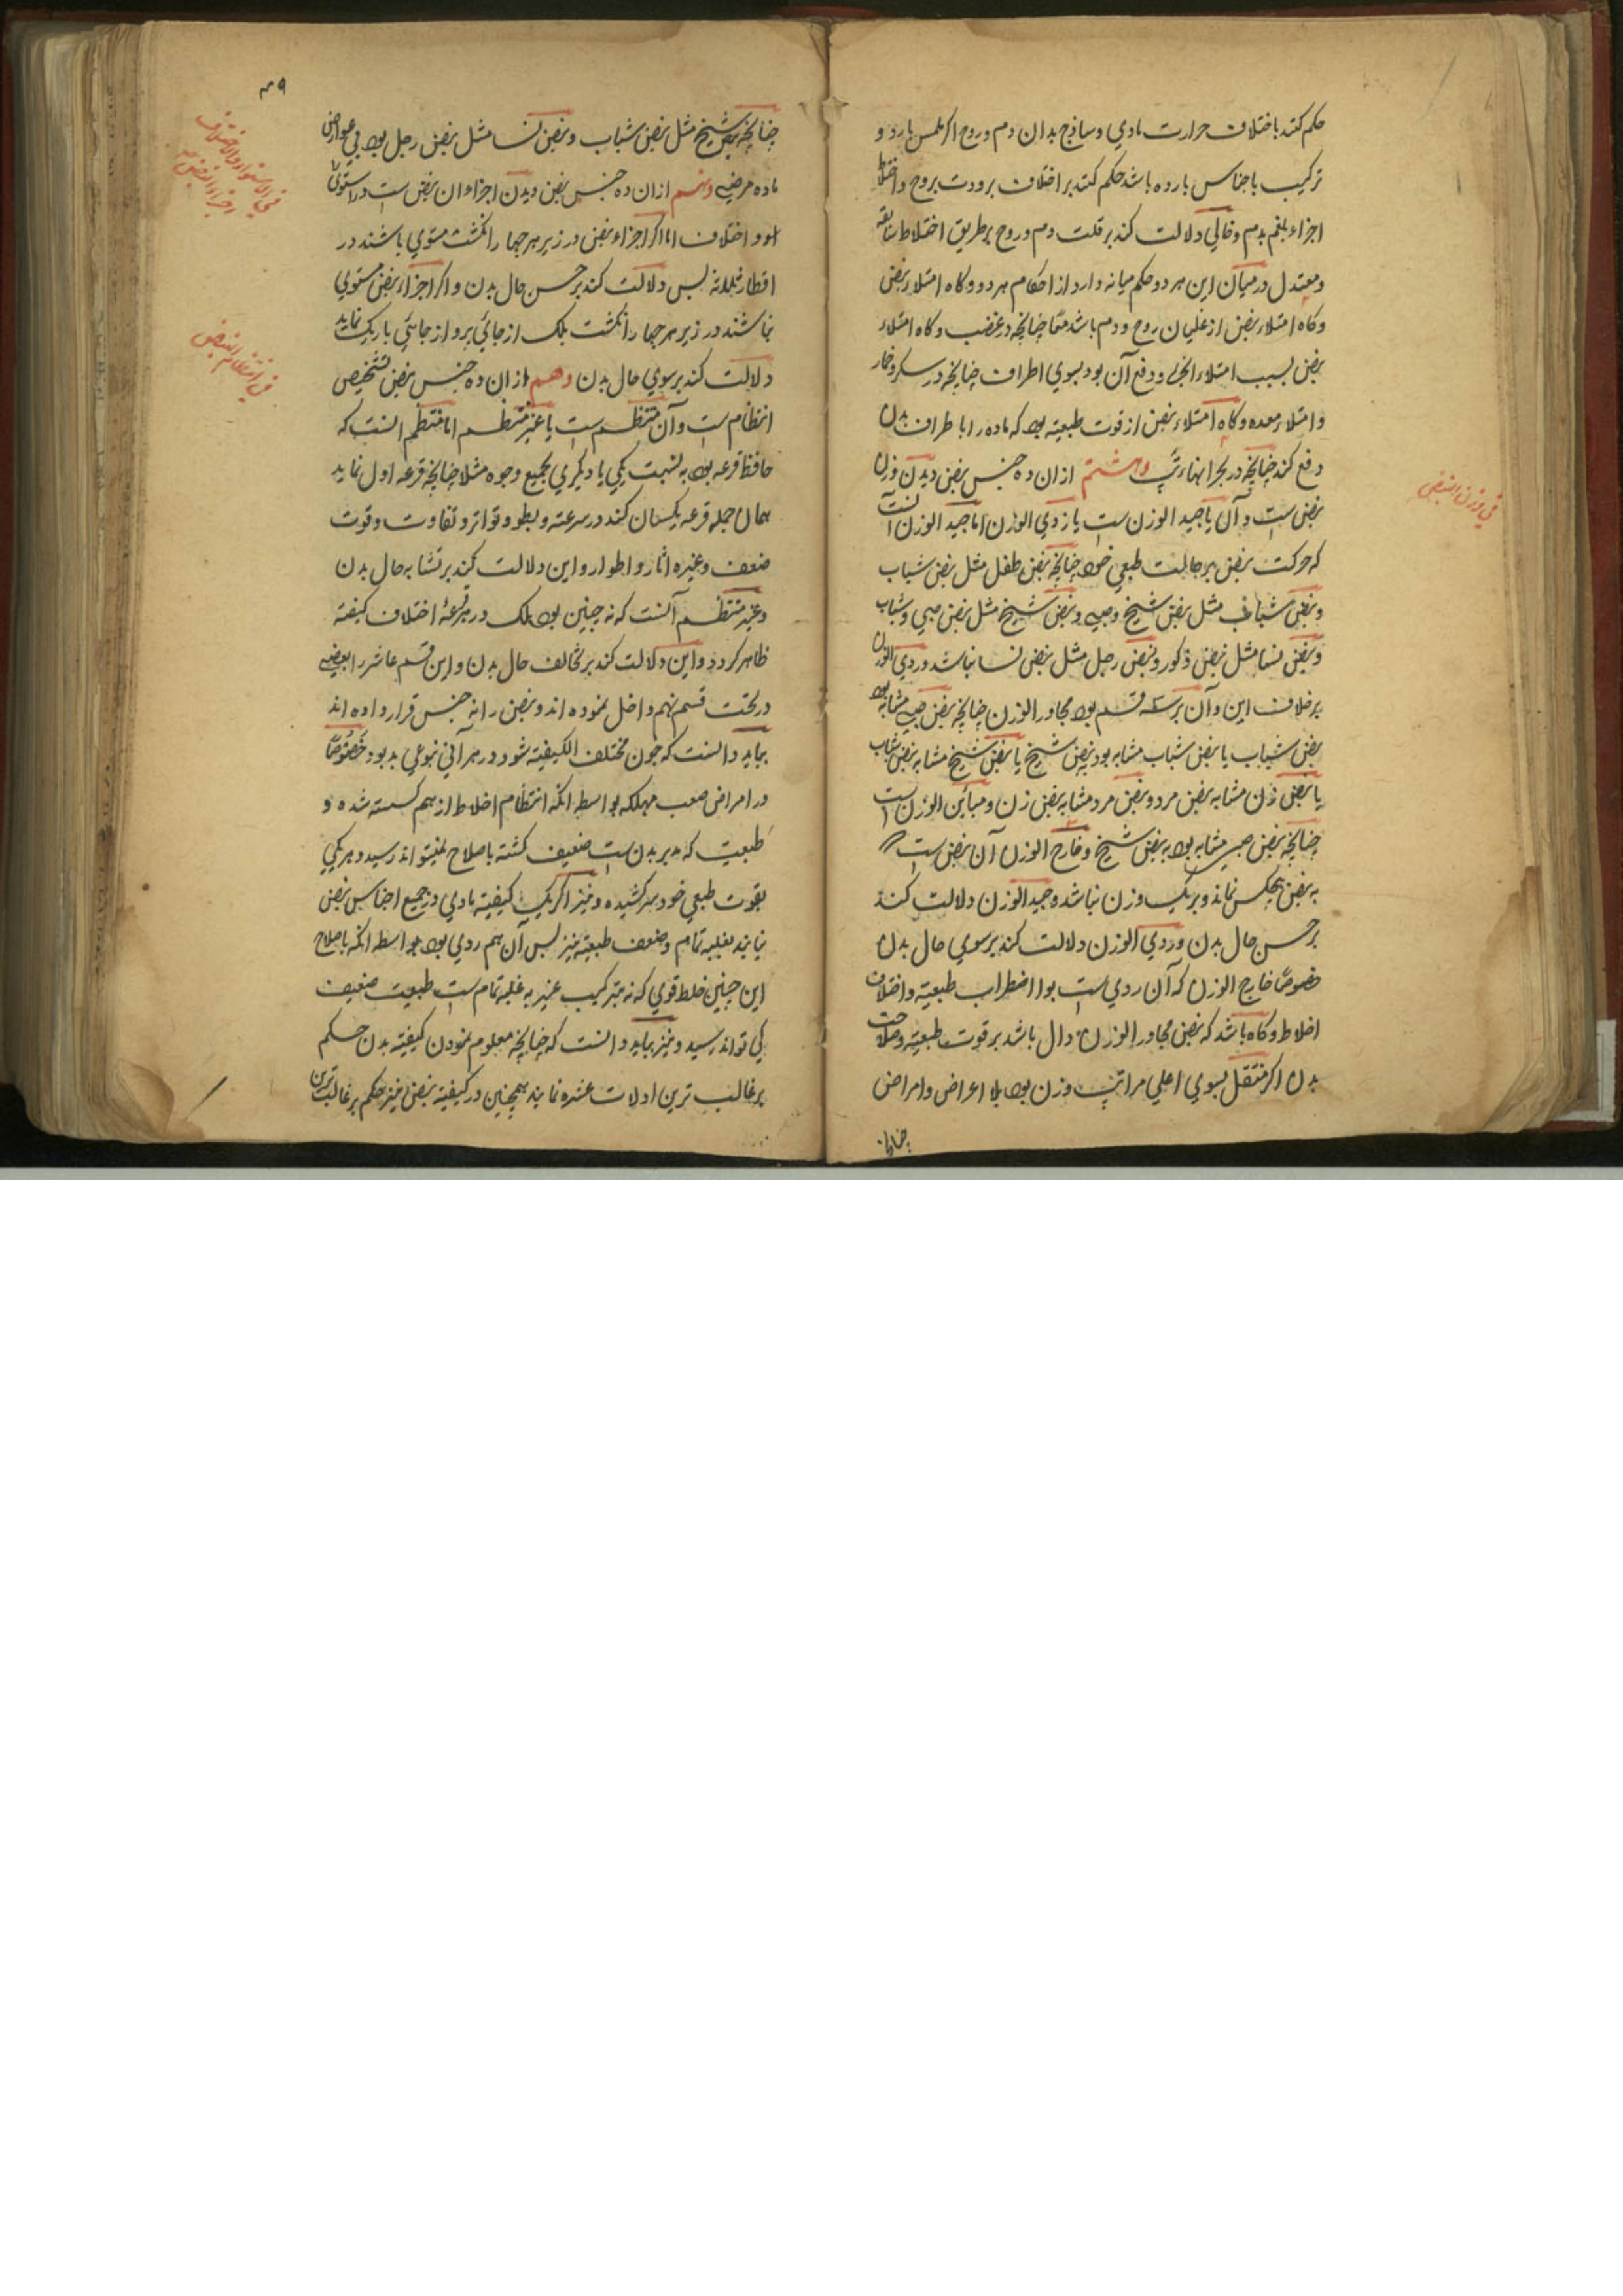 حکم کنند باختلاف حرارت مادي و ساذج بدان دم و روح اکر لمس بارد و
ترکیب با جناس بارده باشد حکم کنند بر اختلاف برودت بروح و اختلاط
اجزاء بلغم بدم و خالي دلالت کند بر قلت دم و روح بر طریق اختلاط سابقه
و معتدل در میان این هر دو حکم میانه دارد از احکام هر دو و کاه امتلاء نبض
و کاه امتلاء نبض از غلیان روح و دم باشد چنانچه در غضب و کاه امتلاء
نبض بسبب امتلاء ابخره و دفع آن بود بسوي اطراف چنانچه در سکر و خمار
و امتلاء معده و کاه امتلاء نبض از قوت طبیعیه بود که ماده را باطراف بدن
دفع کند چنانچه در بحرانهاء تب وهشتم ازان ده جنس نبض دیدن وزن
نبض است و آن یا جید الوزن است یا ردي الوزن اما جید الوزن آنست
که حرکت نبض بر حالت طبعي خود چنانچه نبض طفل مثل نبض شباب
و نبض شباب مثل نبض شیخ و صبي و نبض شیخ مثل نبض صبي و شباب
و نبض نسا مثل نبض ذکور و نبض رجل مثل نبض نسا نباشد و ردي الوزن
بر خلاف این و آن بر سه قسم بود مجاور الوزن چنانچه نبض صبي مشابه بود
نبض شباب یا نبض شباب مشابه بود نبض شیخ یا نبض شیخ مشابه نبض شباب
یا نبض زن مشابه نبض مرد و نبض مرد مشابه نبض زن و مباین الوزن است
چنانچه نبض صبي مشابه بود به نبض شیخ و خارج الوزن آن نبض است
به نبض هیچکس نماند و بر یک وزن نباشد و جید الوزن دلالت کند
بر حسن حال بدن و ردي الوزن دلالت کند بر سوي حال بدن
خصوصاً خارج الوزن که آن ردي است بوا اضطراب طبیعیه و اختلاف
اخلاط و کاه باشد که نبض مجاور الوزن دال باشد بر قوت طبیعیه و صلاحت
بدن اکر منتقل بسوي اعلي مراتب وزن بود بلا اعراض و امراض
چنانچه
في وزن النبض
۴۹
چنانچه نبض شیخ مثل نبض شباب و نبض نسا مثل نبض رجل بود بي عوارض
ماده مرضیه ونهم ازان ده جنس نبض دیدن اجزاء ان نبض است در استوي
او و اختلاف اما اکر اجزاء نبض در زیر هر چهار انکشت مستوي باشند در
اقطار ثلاثه پس دلالت کند بر حسن حال بدن و اکر اجزاء نبض مستوي
نباشند در زیر هر چهار انکشت بلک از جائي پر و از جائي باریک نماید
دلالت کند بر سوي حال بدن دهم ازان ده جنس نبض تشخیص
انتظام است و آن منتظم است یا غیر منتظم اما منتظم انست که
حافظ قرعه بود به نسبت یکي با دیکري بجمیع وجوه مثلا چنانچه قرعه اول نماید
همان جمله قرعه یکسان کند در سرعته و بطو و تواتر و تفاوت و قوت
ضعف و غیره اثار و اطوار و این دلالت کند بر تشابه حال بدن
و غیر منتظم آنست که نه چنین بود بلک در هر قرعه اختلاف کیفته
ظاهر کردد و این دلالت کند بر تخالف حال بدن و این قسم عاشر را بعضي
در تحت قسم نهم داخل نموده اند و نبض را نه جنس قرار داده اند
بباید دانست که چون مختلف الکیفیته شود در هر آني نبوعي بد بود خصوصاً
در امراض صعب مهلکه بواسطه انکه انتظام اخلاط از هم کسسته شده و
طبعیت که مدبر بدن است ضعیف کشته باصلاح نمیتواند رسید و هر یکي
بقوت طبعي خود سر کشیده و نیز اکر یک کیفیته مادي در جمیع اجناس نبض
نیابند بغلبه تمام و ضعف طبعیته نیز پس آن هم ردي بود بواسطه انکه باصلاح
این چنین خلط قوي که نه بترکیب غیر به غلبه تمام است طبعیت ضعیف
کي تواند رسید و نیز بباید دانست که چنانچه معلوم نمودن کیفیته بدن حکم
بر غالب ترین ادلات عشره نمایند همچنین در کیفیته نبض نیز حکم بر غالبترین
في الاستواء والاختلاف
اجزاء النبض
في انتظام النبض